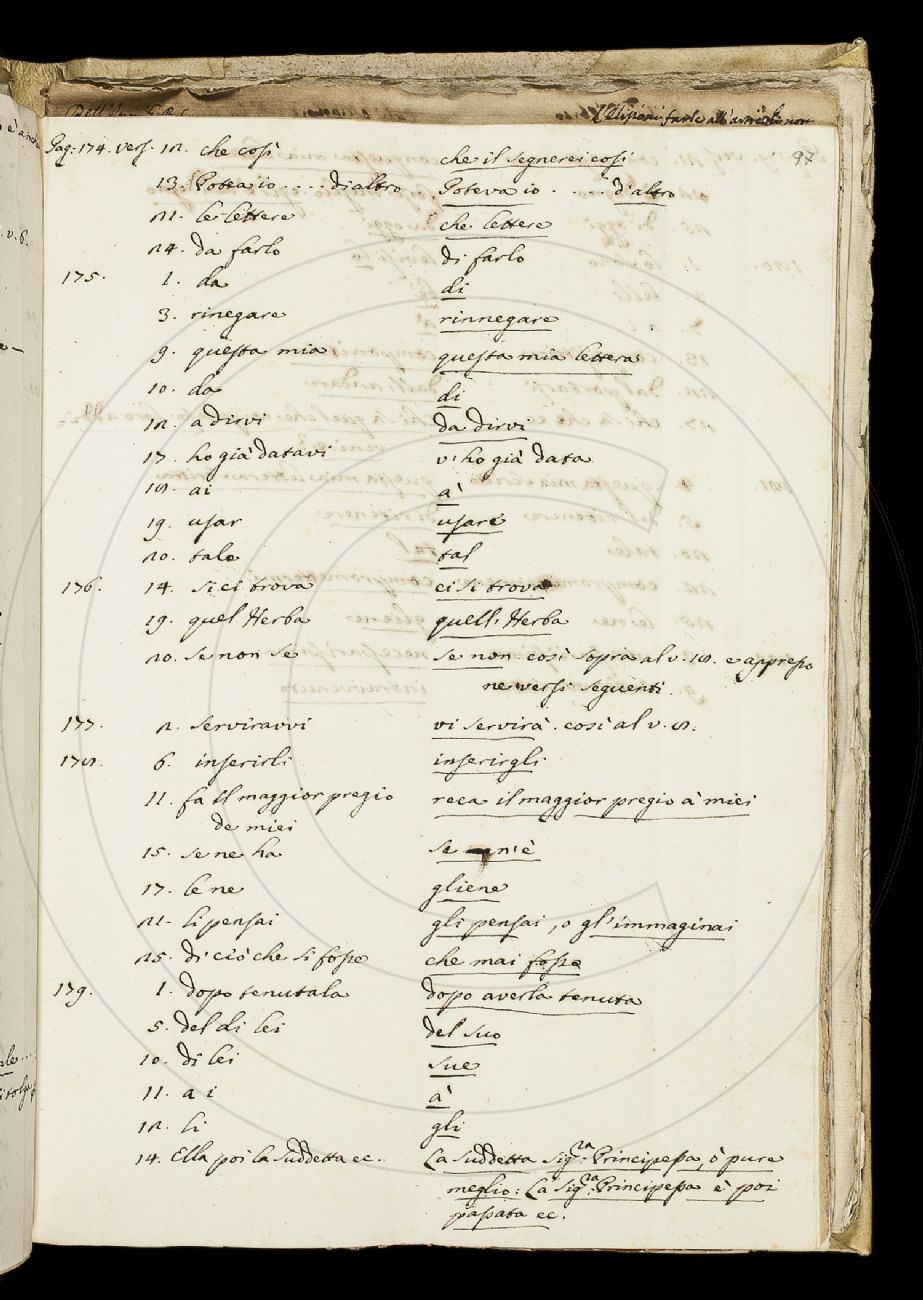 97
Pag: 174. vers. 12. che così che il segnerei così
13. Potea io .... di altro Poteva io .... d'altro
21. le lettere che lettere
24. da farlo di farlo
175. 1. da di
3. rinegare rinnegare
9. questa mia questa mia lettera
10. da di
12. a dirvi da dirvi
17. ho già datavi v'ho già data
18. ai à
19. usar usare
20. tale tal
176. 14. si ci trova ci si trova
19. quel Herba quell'Herba
20. se non se se non così sopra al v. 18. e appresso
ne versi seguenti
177. 2. serviravvi vi servirà. così al v. 8.
178. 6. inserirli inserirgli
11. fa il maggior pregio reca il maggior pregio à miei
de miei
15. se ne ha se n'è
17. le ne gliene
21. li pensai gli pensai, o gl'immaginai
25. di ciò che si fosse che mai fosse
179. 1. dopo tenutala dopo averla tenuta
5. del di lei del suo
10. di lei sue
11. a i à
12. li gli
14. Ella poi la suddetta ec. La suddetta Sig.ra Principessa, ò pure
meglio: La Sig.ra Principessa è poi
passata ec.